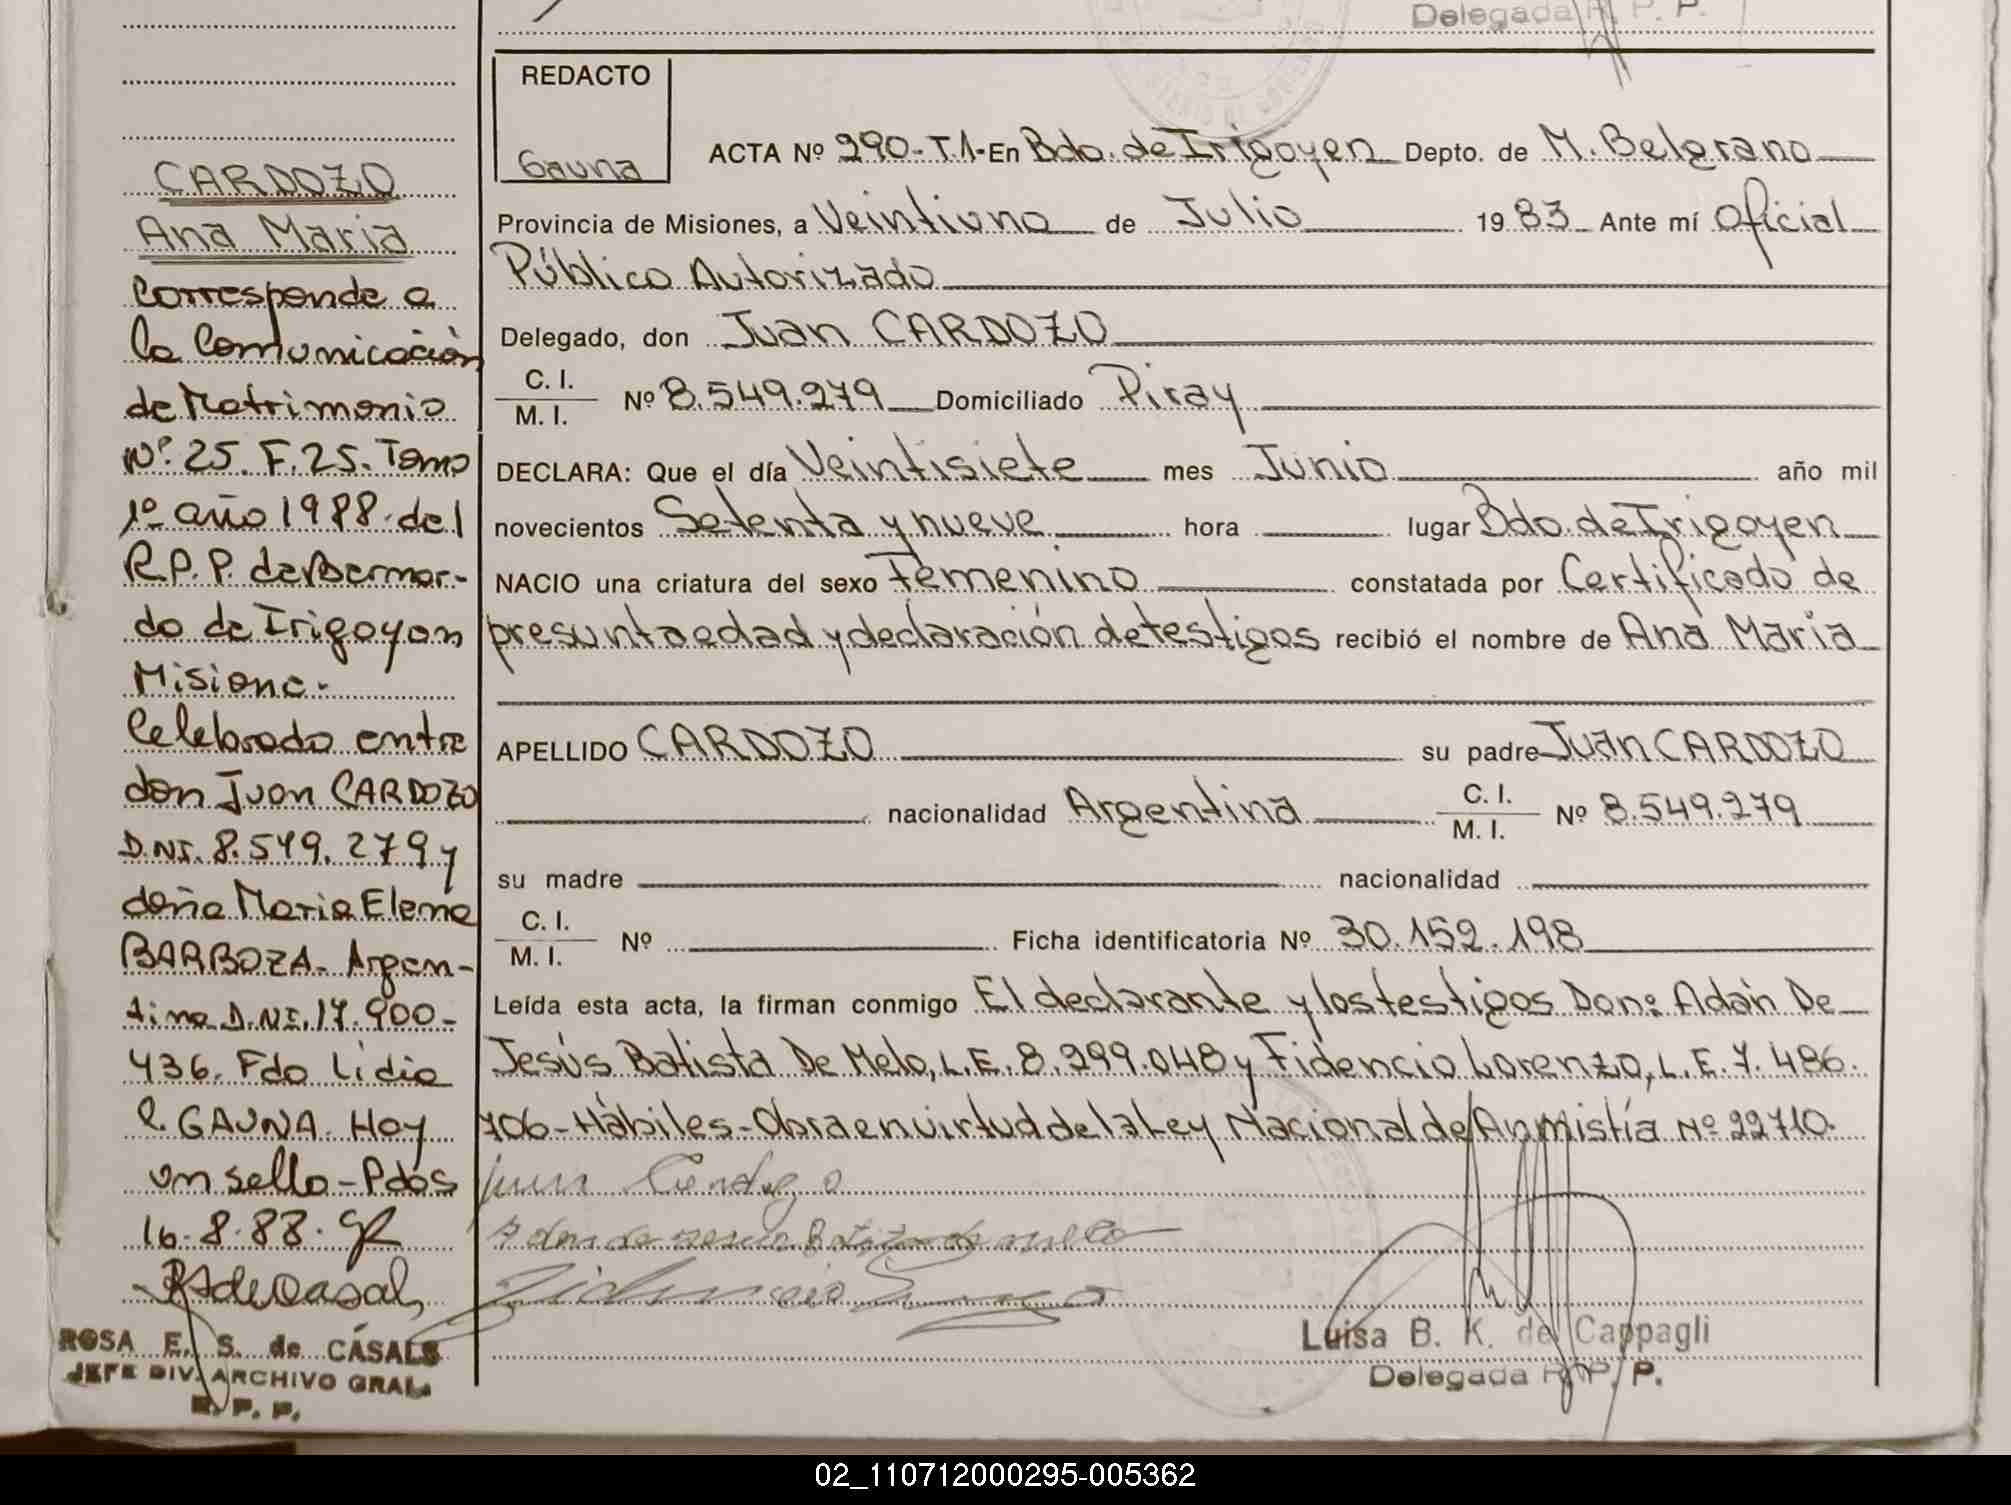 Delegada R. P. P.
REDACTO
Gauna
ACTA Nº 290-T.1-En Bdo. de Irigoyen Depto. de M. Belgrano
Provincia de Misiones, a Veintiuno de Julio 1983 Ante mí Oficial
Público Autorizado
Delegado, don Juan CARDOZO
C. I.
M. I. Nº 8.549.279 Domiciliado Piray
DECLARA: Que el día Veintisiete mes Junio año mil
novecientos Setenta y nueve hora lugar Bdo. de Irigoyen
NACIO una criatura del sexo Femenino constatada por Certificado de
presunta edad y declaración de testigos recibió el nombre de Ana María
APELLIDO CARDOZO su padre Juan CARDOZO
nacionalidad Argentina C. I.
M. I. Nº 8.549.279
su madre nacionalidad
C. I.
M. I. Nº Ficha identificatoria Nº 30.152.198
Leída esta acta, la firman conmigo El declarante y los testigos Don: Adán De
Jesús Batista De Melo, L.E. 8.299.048 y Fidencio Lorenzo, L.E. 7.486.
706-Hábiles-Obra en virtud de la Ley Nacional de Anmistía Nº 22710.
Luisa B. K. de Cappagli
Delegada R. P. P.
CARDOZO
Ana María
Corresponde a
la Comunicación
de Matrimonio
Nº 25. F. 25. Tomo
1º año 1988. del
R.P.P. de Bernar-
do de Irigoyen
Misione.
Celebrado entre
don Juan CARDOZO
D.NI. 8.549.279 y
doña Maria Elena
BARBOZA. Argen-
tina D.NI. 17.900-
436. Fdo Lidia
R. GAUNA. Hay
un sello-Pdas
16-8-88.
ROSA E. S. de CASALS
JEFE DIV. ARCHIVO GRAL.
R. P. P.
02_110712000295-005362